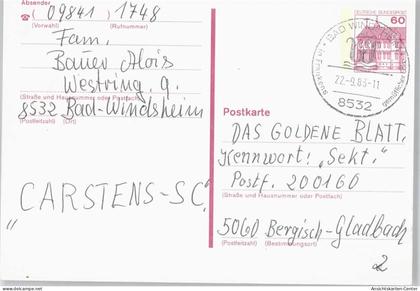 Absender
(09841) 1748
(Vorwahl) (Rufnummer)
Fam.
Bauer Alois
Westring. 9.
(Straße und Hausnummer oder Postfach)
8532 Bad-Windsheim
(Postleitzahl) (Ort)
"CARSTENS-SC."
DEUTSCHE BUNDESPOST
60
BAD WINDSHEIM
22.-9.83-11
8532
Postkarte
DAS GOLDENE BLATT.
Kennwort: „Sekt."
Postf. 200160
(Straße und Hausnummer oder Postfach)
5060 Bergisch-Gladbach
(Postleitzahl) (Bestimmungsort)
2
akpool.de
Ansichtskarten-Center